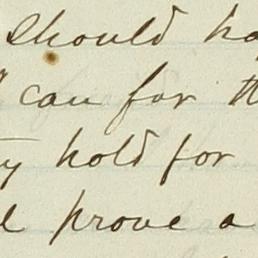 should ha
I can for th
ty hold for
l prove a